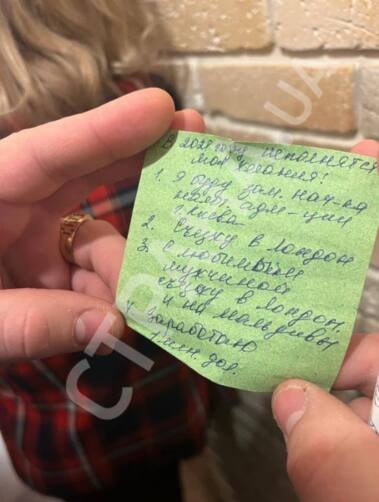 В 2021 году исполнятся
мои желания!
1. Я буду зам. нач-ка
адм-ции
г. Киева
2. Съезжу в Лондон
3. С любимым
мужчиной
съезжу в Лондон
и на Мальдивы
4. Заработаю
1 млн дол.
СТРАНА.UA